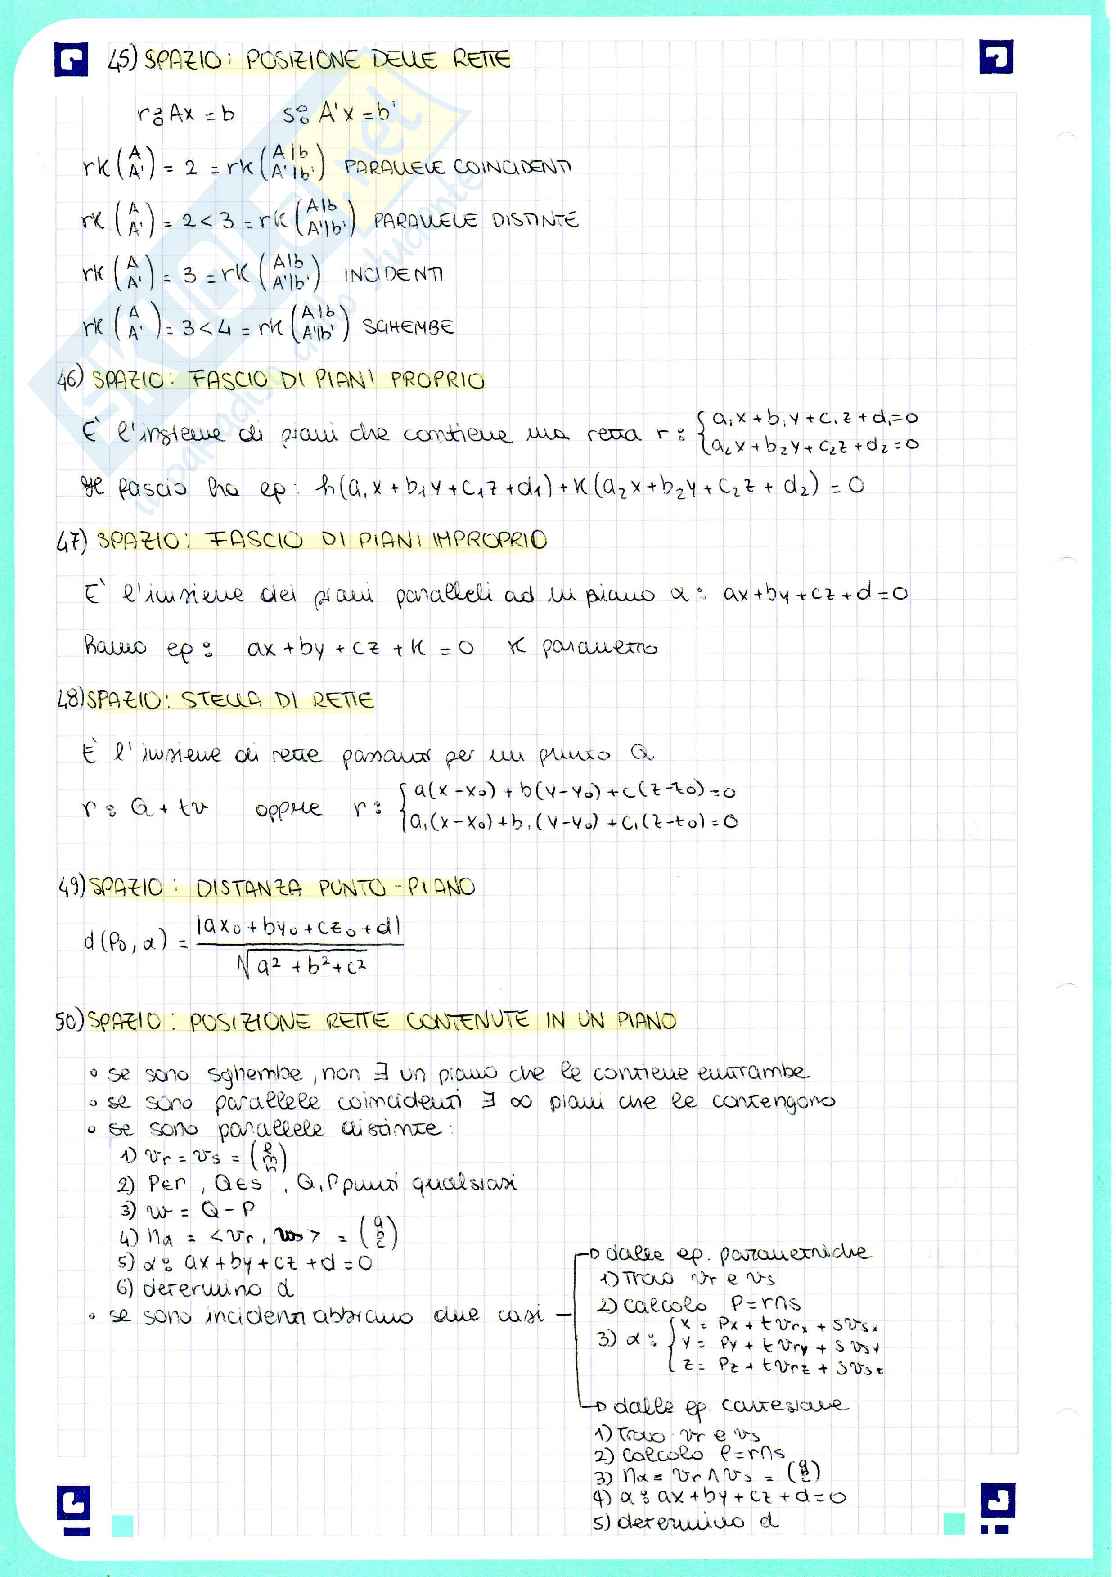 45) SPAZIO: POSIZIONE DELLE RETTE
r: Ax = b    s: A'x = b'
rk (A / A') = 2 = rk (A|b / A'|b') PARALLELE COINCIDENTI
rk (A / A') = 2 < 3 = rk (A|b / A'|b') PARALLELE DISTINTE
rk (A / A') = 3 = rk (A|b / A'|b') INCIDENTI
rk (A / A') = 3 < 4 = rk (A|b / A'|b') SGHEMBE
46) SPAZIO: FASCIO DI PIANI PROPRIO
È l'insieme di piani che contiene una retta r: { a₁x + b₁y + c₁z + d₁ = 0
a₂x + b₂y + c₂z + d₂ = 0
Il fascio ha eq: h(a₁x + b₁y + c₁z + d₁) + k(a₂x + b₂y + c₂z + d₂) = 0
47) SPAZIO: FASCIO DI PIANI IMPROPRIO
È l'insieme dei piani paralleli ad un piano α: ax + by + cz + d = 0
Hanno eq: ax + by + cz + k = 0    k parametro
48) SPAZIO: STELLA DI RETTE
È l'insieme di rette passanti per un punto Q
r: Q + tv    oppure    r: { a(x-x₀) + b(y-y₀) + c(z-z₀) = 0
a₁(x-x₀) + b₁(y-y₀) + c₁(z-z₀) = 0
49) SPAZIO: DISTANZA PUNTO-PIANO
d(P₀, α) = |ax₀ + by₀ + cz₀ + d| / √a² + b² + c²
50) SPAZIO: POSIZIONE RETTE CONTENUTE IN UN PIANO
• se sono sghembe, non ∃ un piano che le contiene entrambe
• se sono parallele coincidenti ∃ ∞ piani che le contengono
• se sono parallele distinte:
1) vr = vs = (l m n)
2) P∈r, Q∈s, Q,P punti qualsiasi
3) w = Q - P
4) nα = <vr, > =
5) α: ax + by + cz + d = 0
6) determino d
• se sono incidenti abbiamo due casi
dalle eq. parametriche
1) Trovo vr e vs
2) Calcolo P = r∩s
3) α: { x = Px + tvrx + svsx
y = Py + tvry + svsy
z = Pz + tvrz + svsz
dalle eq cartesiane
1) Trovo vr e vs
2) Calcolo P = r∩s
3) nα = vr ∧ vs =
4) α: ax + by + cz + d = 0
5) determino d
SKUOLA.net